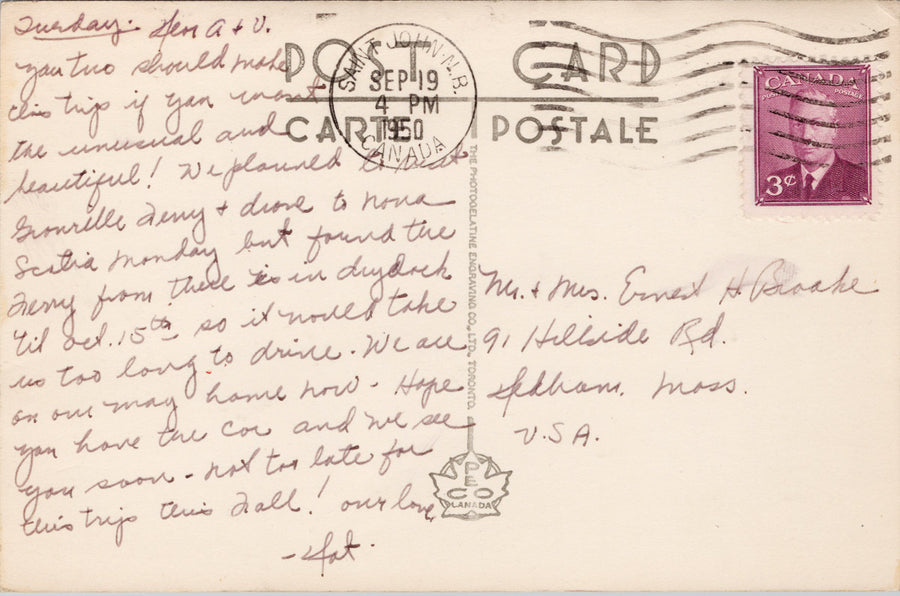 Tuesday. Dear A + V.
you two should make
this trip if you want
the unusual and
beautiful! We planned
Ferry + drove to Nova
Scotia Monday but found the
Ferry from there is in drydock
'til Oct. 15th so it would take
us too long to drive. We are
on our way home now - Hope
you have the car and we see
you soon - not too late for
this trip this Fall! our love,
- Dot.
POST CARD
CARTE POSTALE
SAINT JOHN·N.B.
SEP 19
4 PM
1950
CANADA
CANADA
POSTES POSTAGE
3¢
THE PHOTOGELATINE ENGRAVING CO., LTD., TORONTO.
Mr. + Mrs. Ernest H. Brooke
91 Hillside Rd.
Dedham, Mass.
U.S.A.
PECO
CANADA